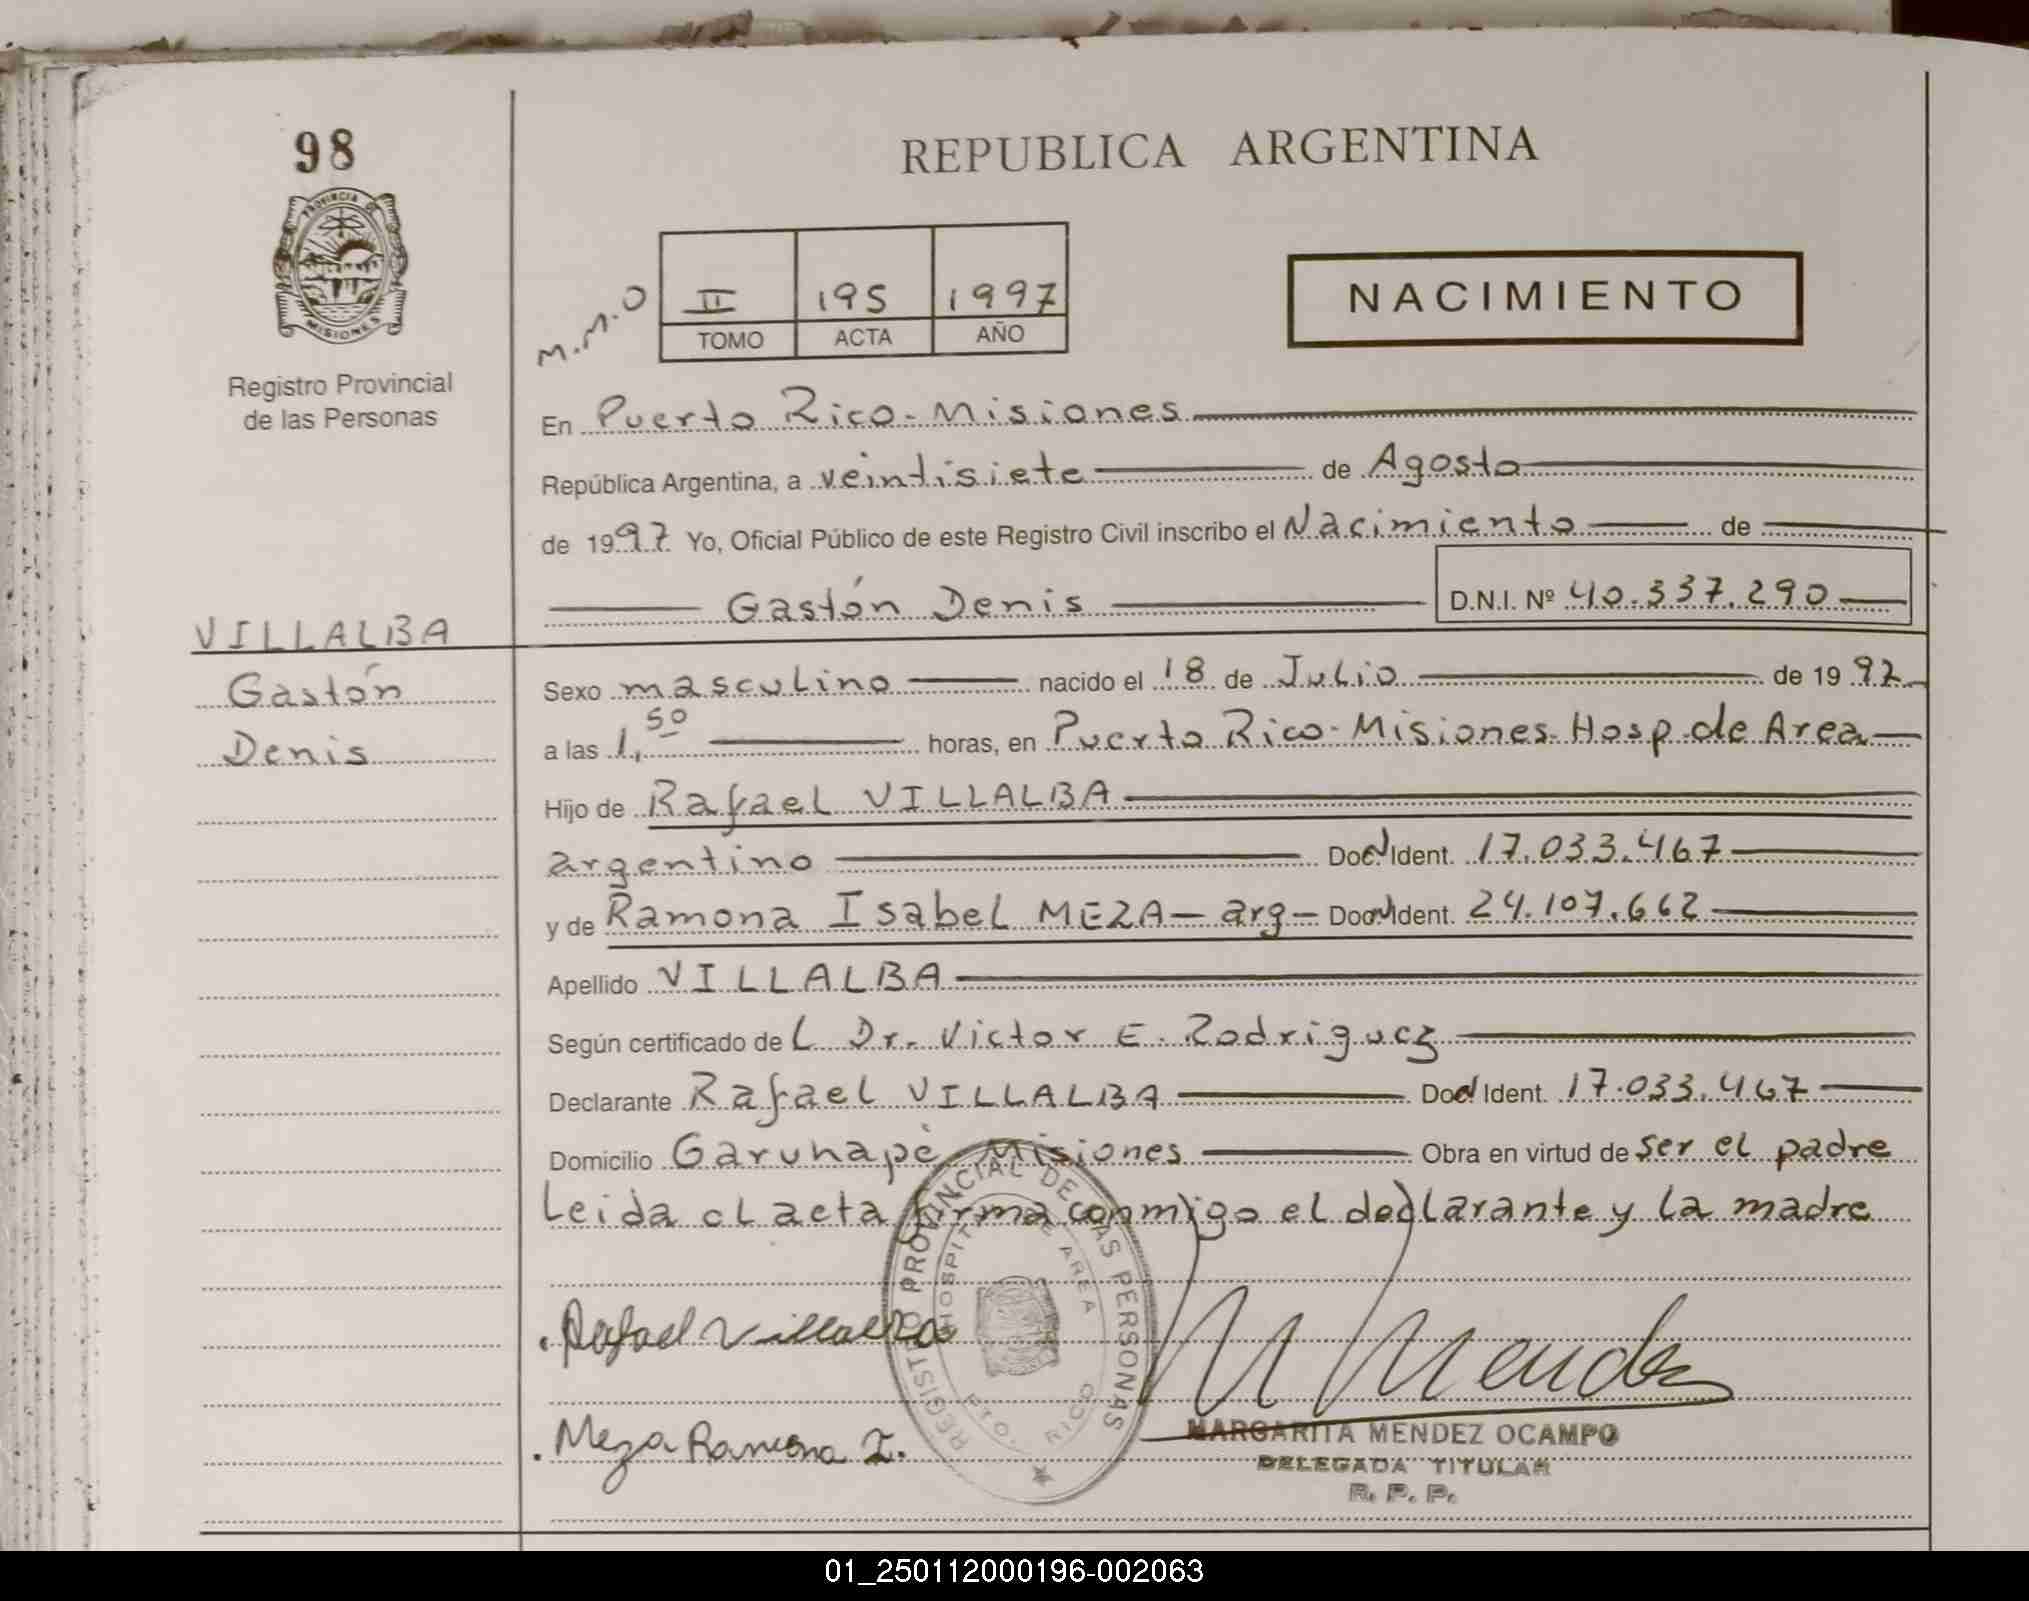 98
REPUBLICA ARGENTINA
PROVINCIA DE
MISIONES
Registro Provincial
de las Personas
M.M.O
II 195 1997
TOMO ACTA AÑO
NACIMIENTO
En Puerto Rico-Misiones
República Argentina, a veintisiete de Agosto
de 1997 Yo, Oficial Público de este Registro Civil inscribo el Nacimiento de
Gastón Denis D.N.I. Nº 40.337.290
VILLALBA
Gastón
Denis
Sexo masculino nacido el 18 de Julio de 1997
a las 1,50 horas, en Puerto Rico-Misiones-Hosp.de Area
Hijo de Rafael VILLALBA
argentino Doc Ident. 17.033.467
y de Ramona Isabel MEZA- arg- Doc Ident. 24.107.662
Apellido VILLALBA
Según certificado del Dr. Victor E. Rodriguez
Declarante Rafael VILLALBA Doc Ident. 17.033.467
Domicilio Garuhapé Misiones Obra en virtud de ser el padre
Leida el acta firma conmigo el declarante y la madre
REGISTRO PROVINCIAL DE LAS PERSONAS
HOSPITAL DE AREA
PTO. RICO
Rafael Villalba
M Mendez
Meza Ramona I.
MARGARITA MENDEZ OCAMPO
DELEGADA TITULAR
R. P. P.
01_250112000196-002063